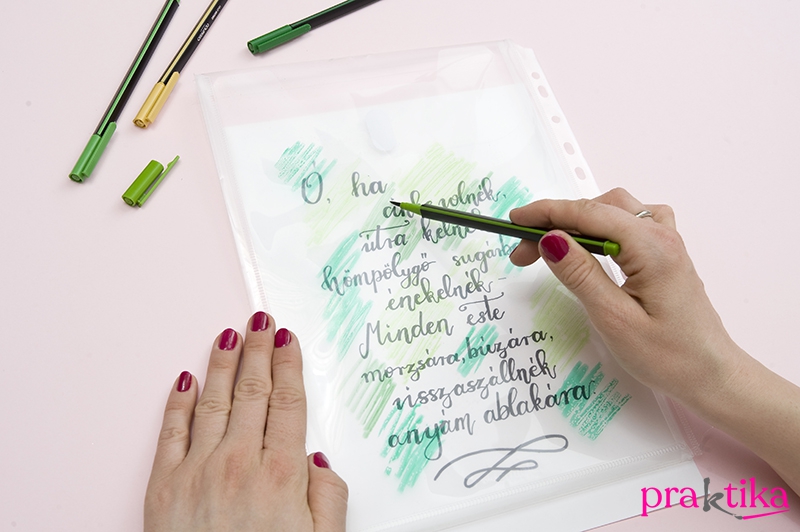 Ó, ha
útra kelné
hömpölygő sugárba
énekelnék-
Minden este
morzsára, búzára,
visszaszállnék
anyám ablakára.
praktika